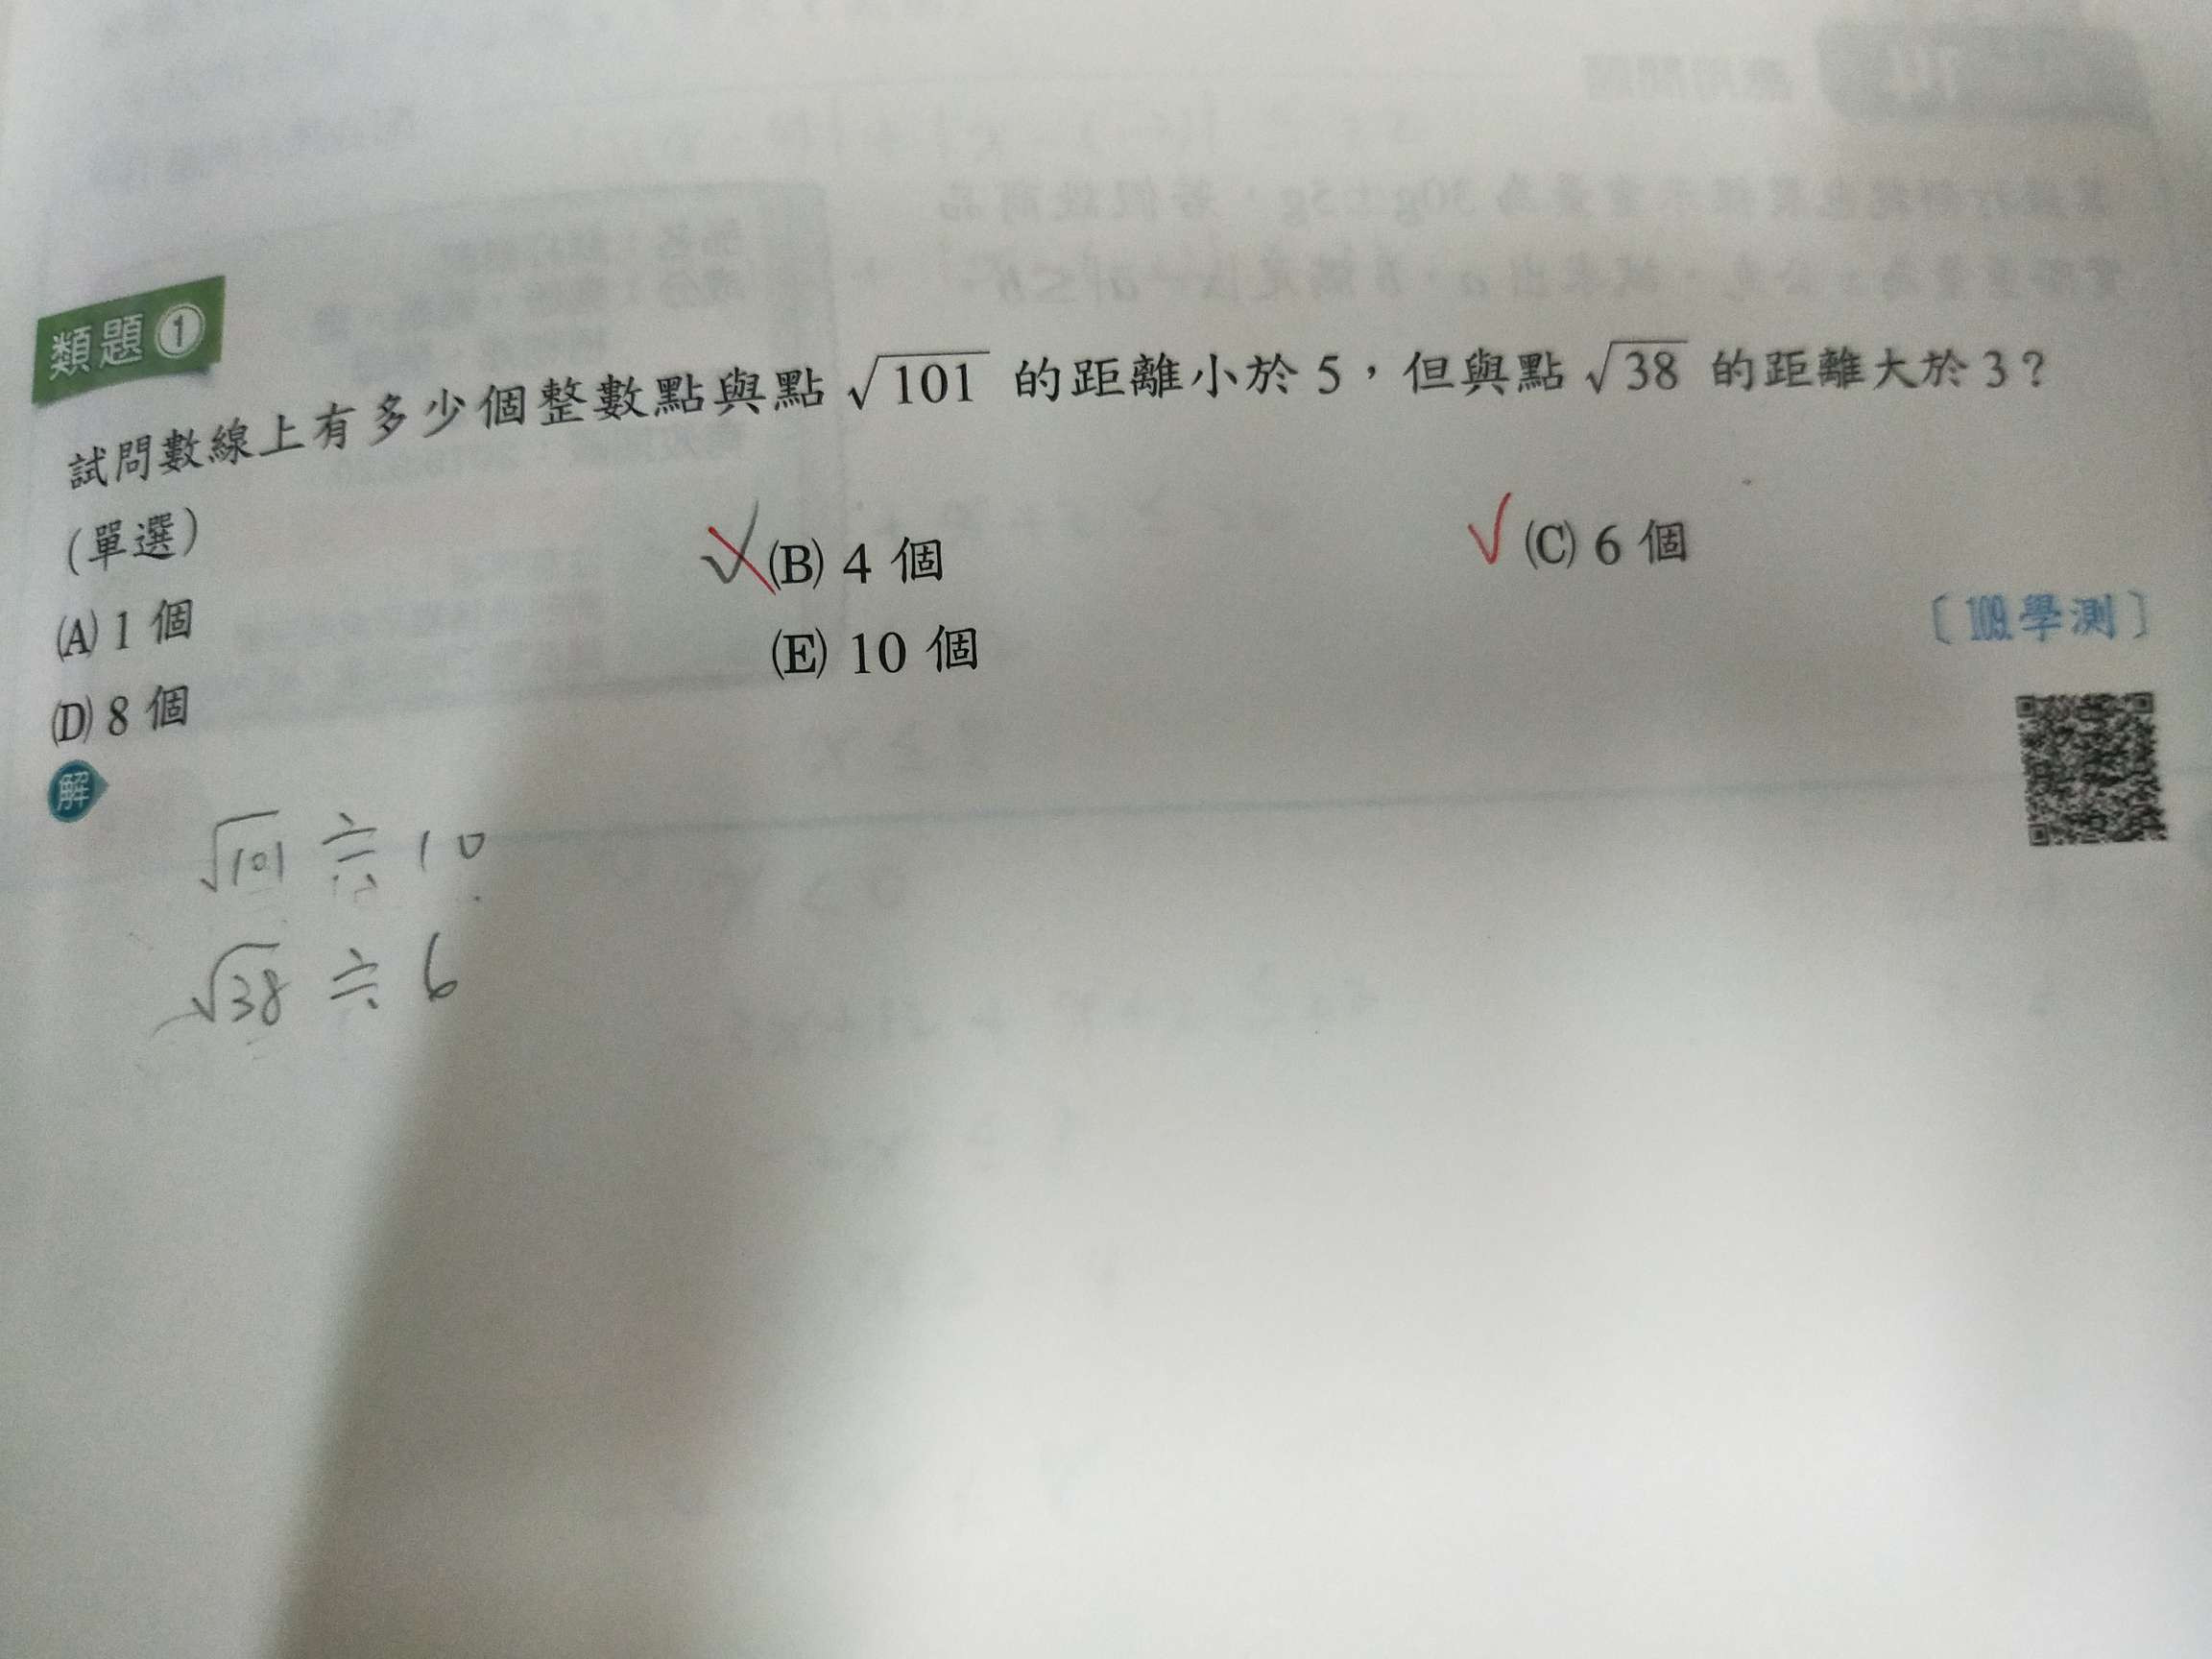 類題①
試問數線上有多少個整數點與點 √101 的距離小於 5，但與點 √38 的距離大於 3？
(單選)
(A) 1 個
(B) 4 個
(C) 6 個
(D) 8 個
(E) 10 個
〔109.學測〕
解
√101 ≒ 10
√38 ≒ 6